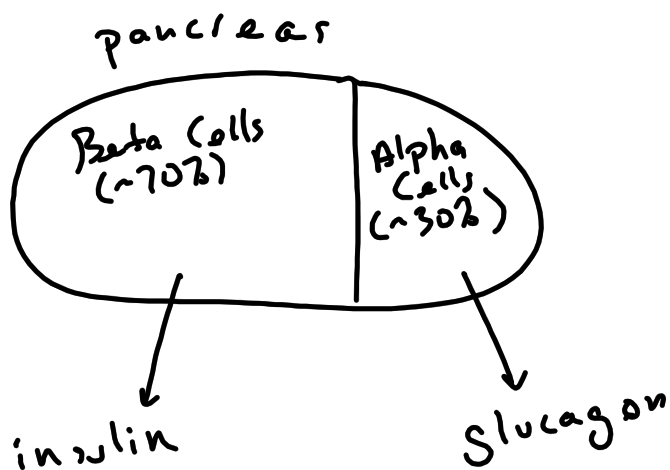 pancreas
Beta Cells
(~70%)
Alpha
Cells
(~30%)
insulin
glucagon